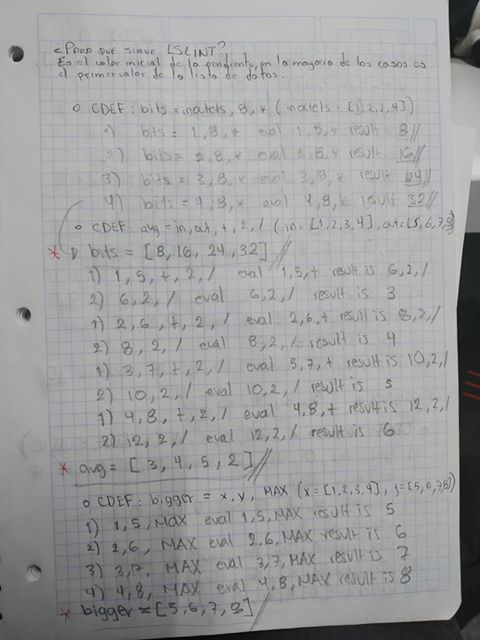 ¿Para que sirve LSLINT?
Es el valor inicial de la pendiente, en la mayoria de los casos es
el primer valor de la lista de datos.
o CDEF: bits = inoctets, 8, * (inoctets = [1,2,3,4])
1) bits = 1,8,* eval 1,8,* result 8//
2) bits = 2,8,* eval 2,8,* result 16//
3) bits = 3,8,* eval 3,8,* result 24//
4) bits = 4,8,* eval 4,8,* result 32//
o CDEF: avg = in, out, +, 2, / (in = [1,2,3,4], out = [5,6,7,8])
* bits = [8, 16, 24, 32]//
1) 1, 5, +, 2, / eval 1,5,+ result is 6,2,/
2) 6, 2, / eval 6,2,/ result is 3
1) 2, 6, +, 2, / eval 2,6,+ result is 8,2,/
2) 8, 2, / eval 8,2,/ result is 4
1) 3, 7, +, 2, / eval 3,7,+ result is 10,2,/
2) 10, 2, / eval 10,2,/ result is 5
1) 4, 8, +, 2, / eval 4,8,+ result is 12,2,/
2) 12, 2, / eval 12,2,/ result is 6
* avg = [3, 4, 5, 2]//
o CDEF: bigger = x, y, MAX (x = [1,2,3,4], y = [5,6,7,8])
1) 1,5, MAX eval 1,5, MAX result is 5
2) 2,6, MAX eval 2,6, MAX result is 6
3) 3,7, MAX eval 3,7, MAX result is 7
4) 4,8, MAX eval 4,8, MAX result is 8
* bigger = [5, 6, 7, 8]//